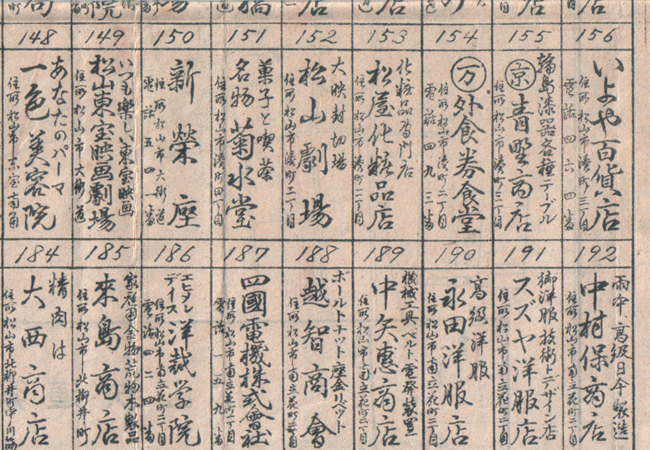 156
いよや百貨店
住所 松山市湊町三丁目
電話 四六四番
155
輪島漆器各種テーブル
京 青野商店
住所 松山市湊町三丁目
154
万 外食券食堂
住所 松山市湊町四丁目
電話 四九三番
153
化粧品専門店
松屋化粧品店
住所 松山市湊町三丁目
152
大映封切場
松山劇場
住所 松山市湊町二丁目
151
菓子と喫茶
名物 菊水堂
住所 松山市湊町四丁目
150
新榮座
住所 松山市大街道
電話 五四一番
149
いつも楽しい東宝映画
松山東宝映画劇場
住所 松山市大街道
148
あなたのパーマ
一色美容院
住所 松山市
192
雨傘、高級日傘製造
中村保商店
住所 松山市南立花町二丁目
191
御洋服技術トデザイン店
スズヤ洋服店
住所 松山市南立花町二丁目
190
高級洋服
永田洋服店
住所 松山市南立花町二丁目
189
機械工具ベルト電発装置
中矢惠商店
住所 松山市南立花町二丁目
188
ボールトナット座金リベット
越智商會
住所 松山市南立花町二丁目
187
四國電機株式會社
住所 松山市南立花町二丁目
電話 一五九
186
エヒメンデイース 洋裁学院
住所 松山市南立花町二丁目
電話 四二四番
185
家庭用金物荒物木製品
來島商店
住所 松山市北柳井町
184
精肉は
大西商店
住所 松山市北柳井町